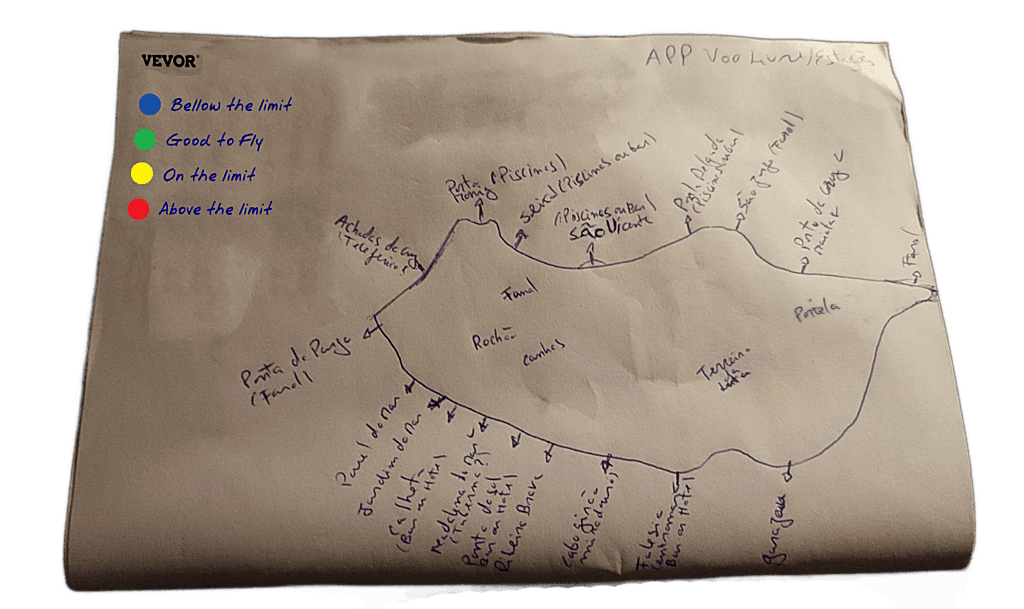 VEVOR
APP Voo Livre/Estações
Bellow the limit
Good to Fly
On the limit
Above the limit
Porto
Moniz (Piscinas)
Seixal (Piscinas ou bar)
(Piscinas ou bar)
São Vicente
Ponta Delgada
(Piscinas
São Jorge (Farol)
Porto da Cruz
Farol
Achadas da Cruz
(Teleférico)
Ponta do Pargo
(Farol)
Fanal
Rochão
Canhas
Portela
Terreiro
da
Luta
Paul do Mar
Jardim do Mar
Calheta
(Bar ou Hotel
Madalena do Mar
(Taberna?)
Ponta do Sol
Bar ou Hotel
Ribeira Brava
Cabo Girão
miradouro)
Falesia
Bar ou Hotel
Garajau